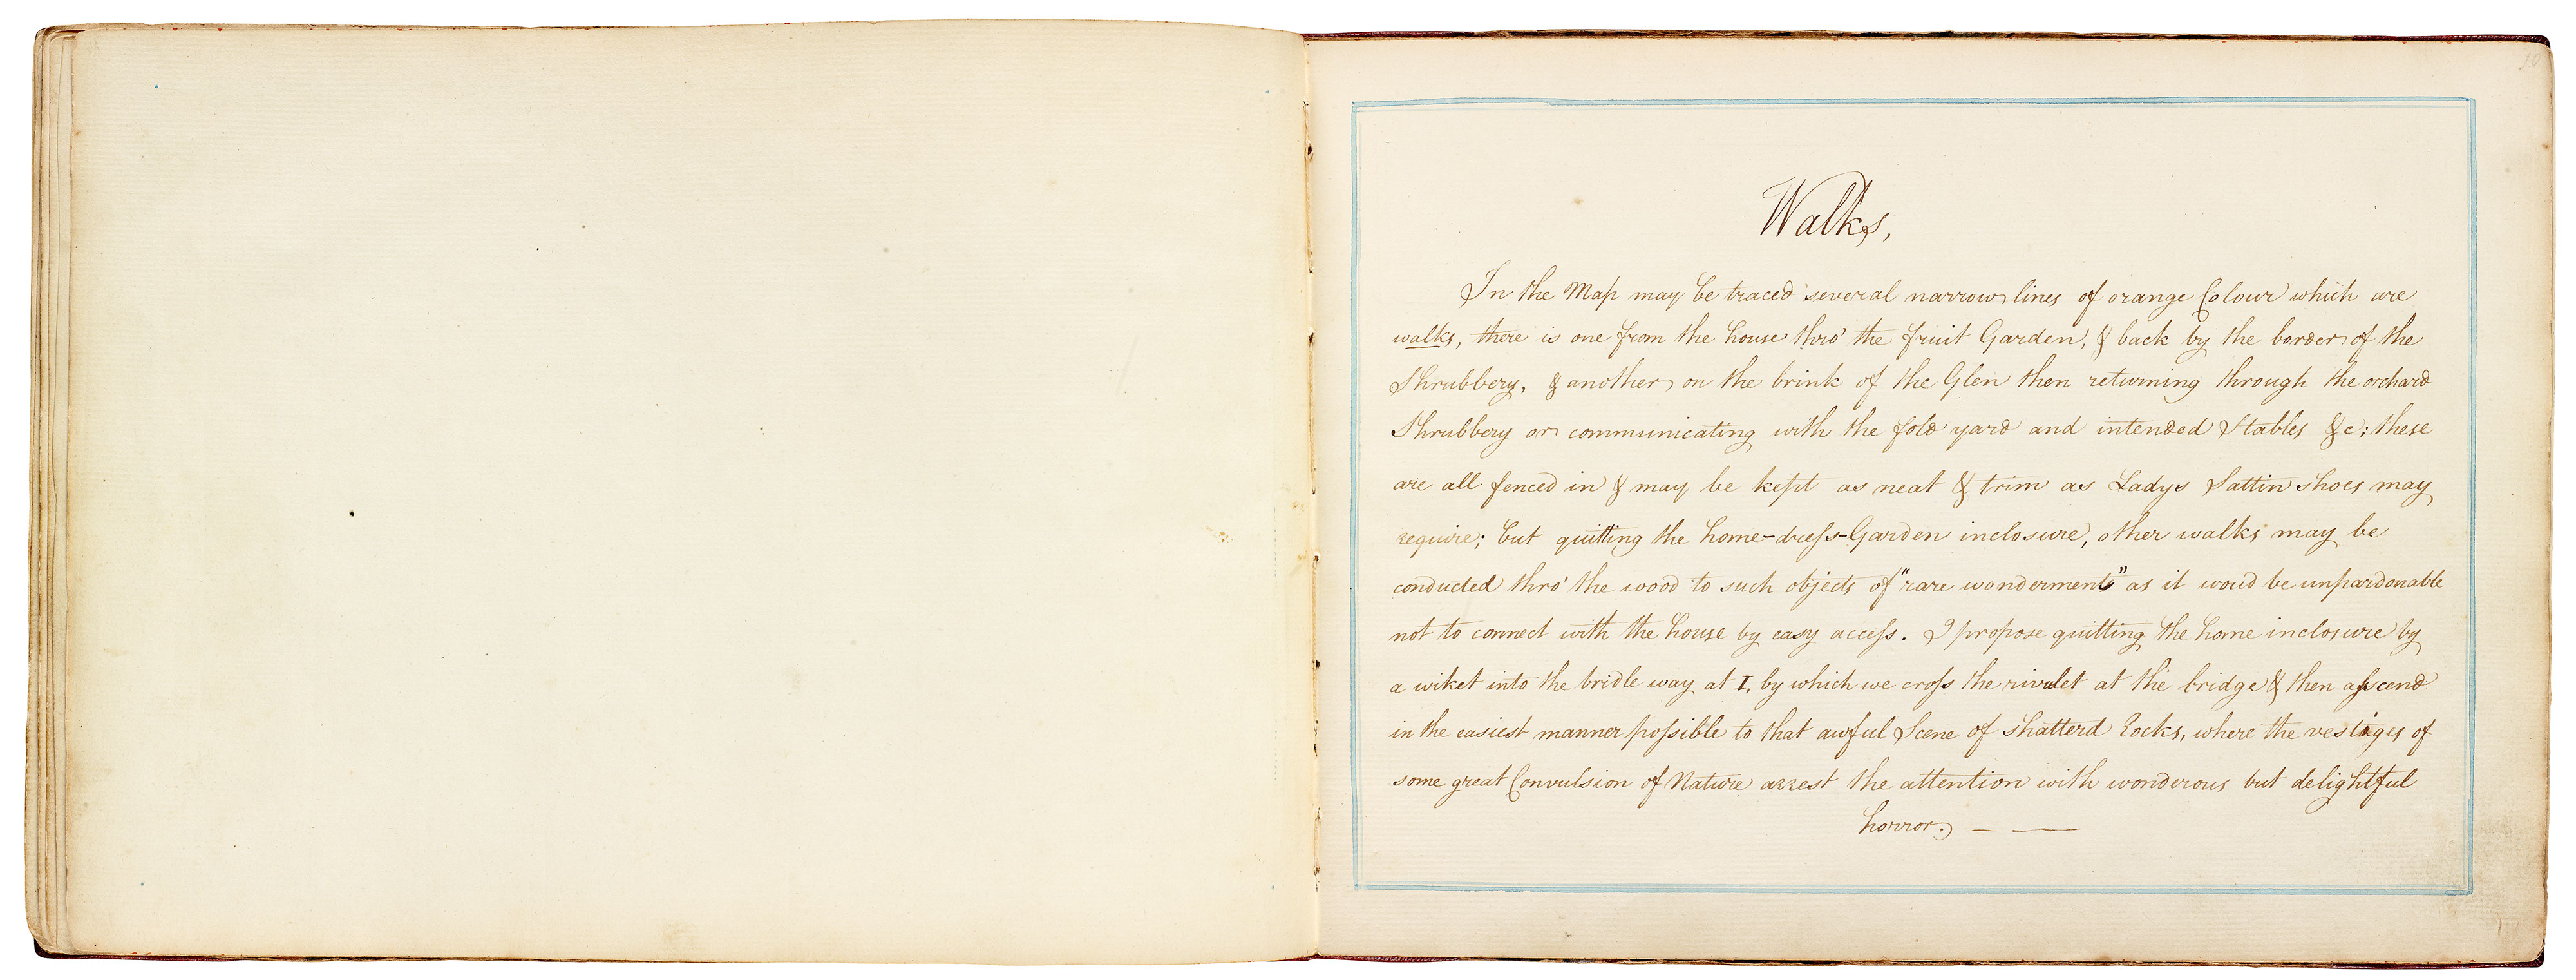 Walks,
In the Map may be traced several narrow lines of orange Colour which are
walks, there is one from the house thro' the fruit Garden, & back by the border of the
Shrubbery, & another on the brink of the Glen then returning through the orchard
Shrubbery or communicating with the fold yard and intended Stables &c; these
are all fenced in & may be kept as neat & trim as Ladys Sattin shoes may
require; but quitting the home-dreſs-Garden inclosure, other walks may be
conducted thro' the wood to such objects of "rare wonderments" as it woud be unpardonable
not to connect with the house by easy acceſs. I propose quitting the home inclosure by
a wiket into the bridle way at I, by which we croſs the rivulet at the bridge & then aſscend
in the easiest manner poſsible to that awful Scene of shatterd Rocks, where the vestiges of
some great Convulsion of Nature arrest the attention with wonderous but delightful
horror. — —